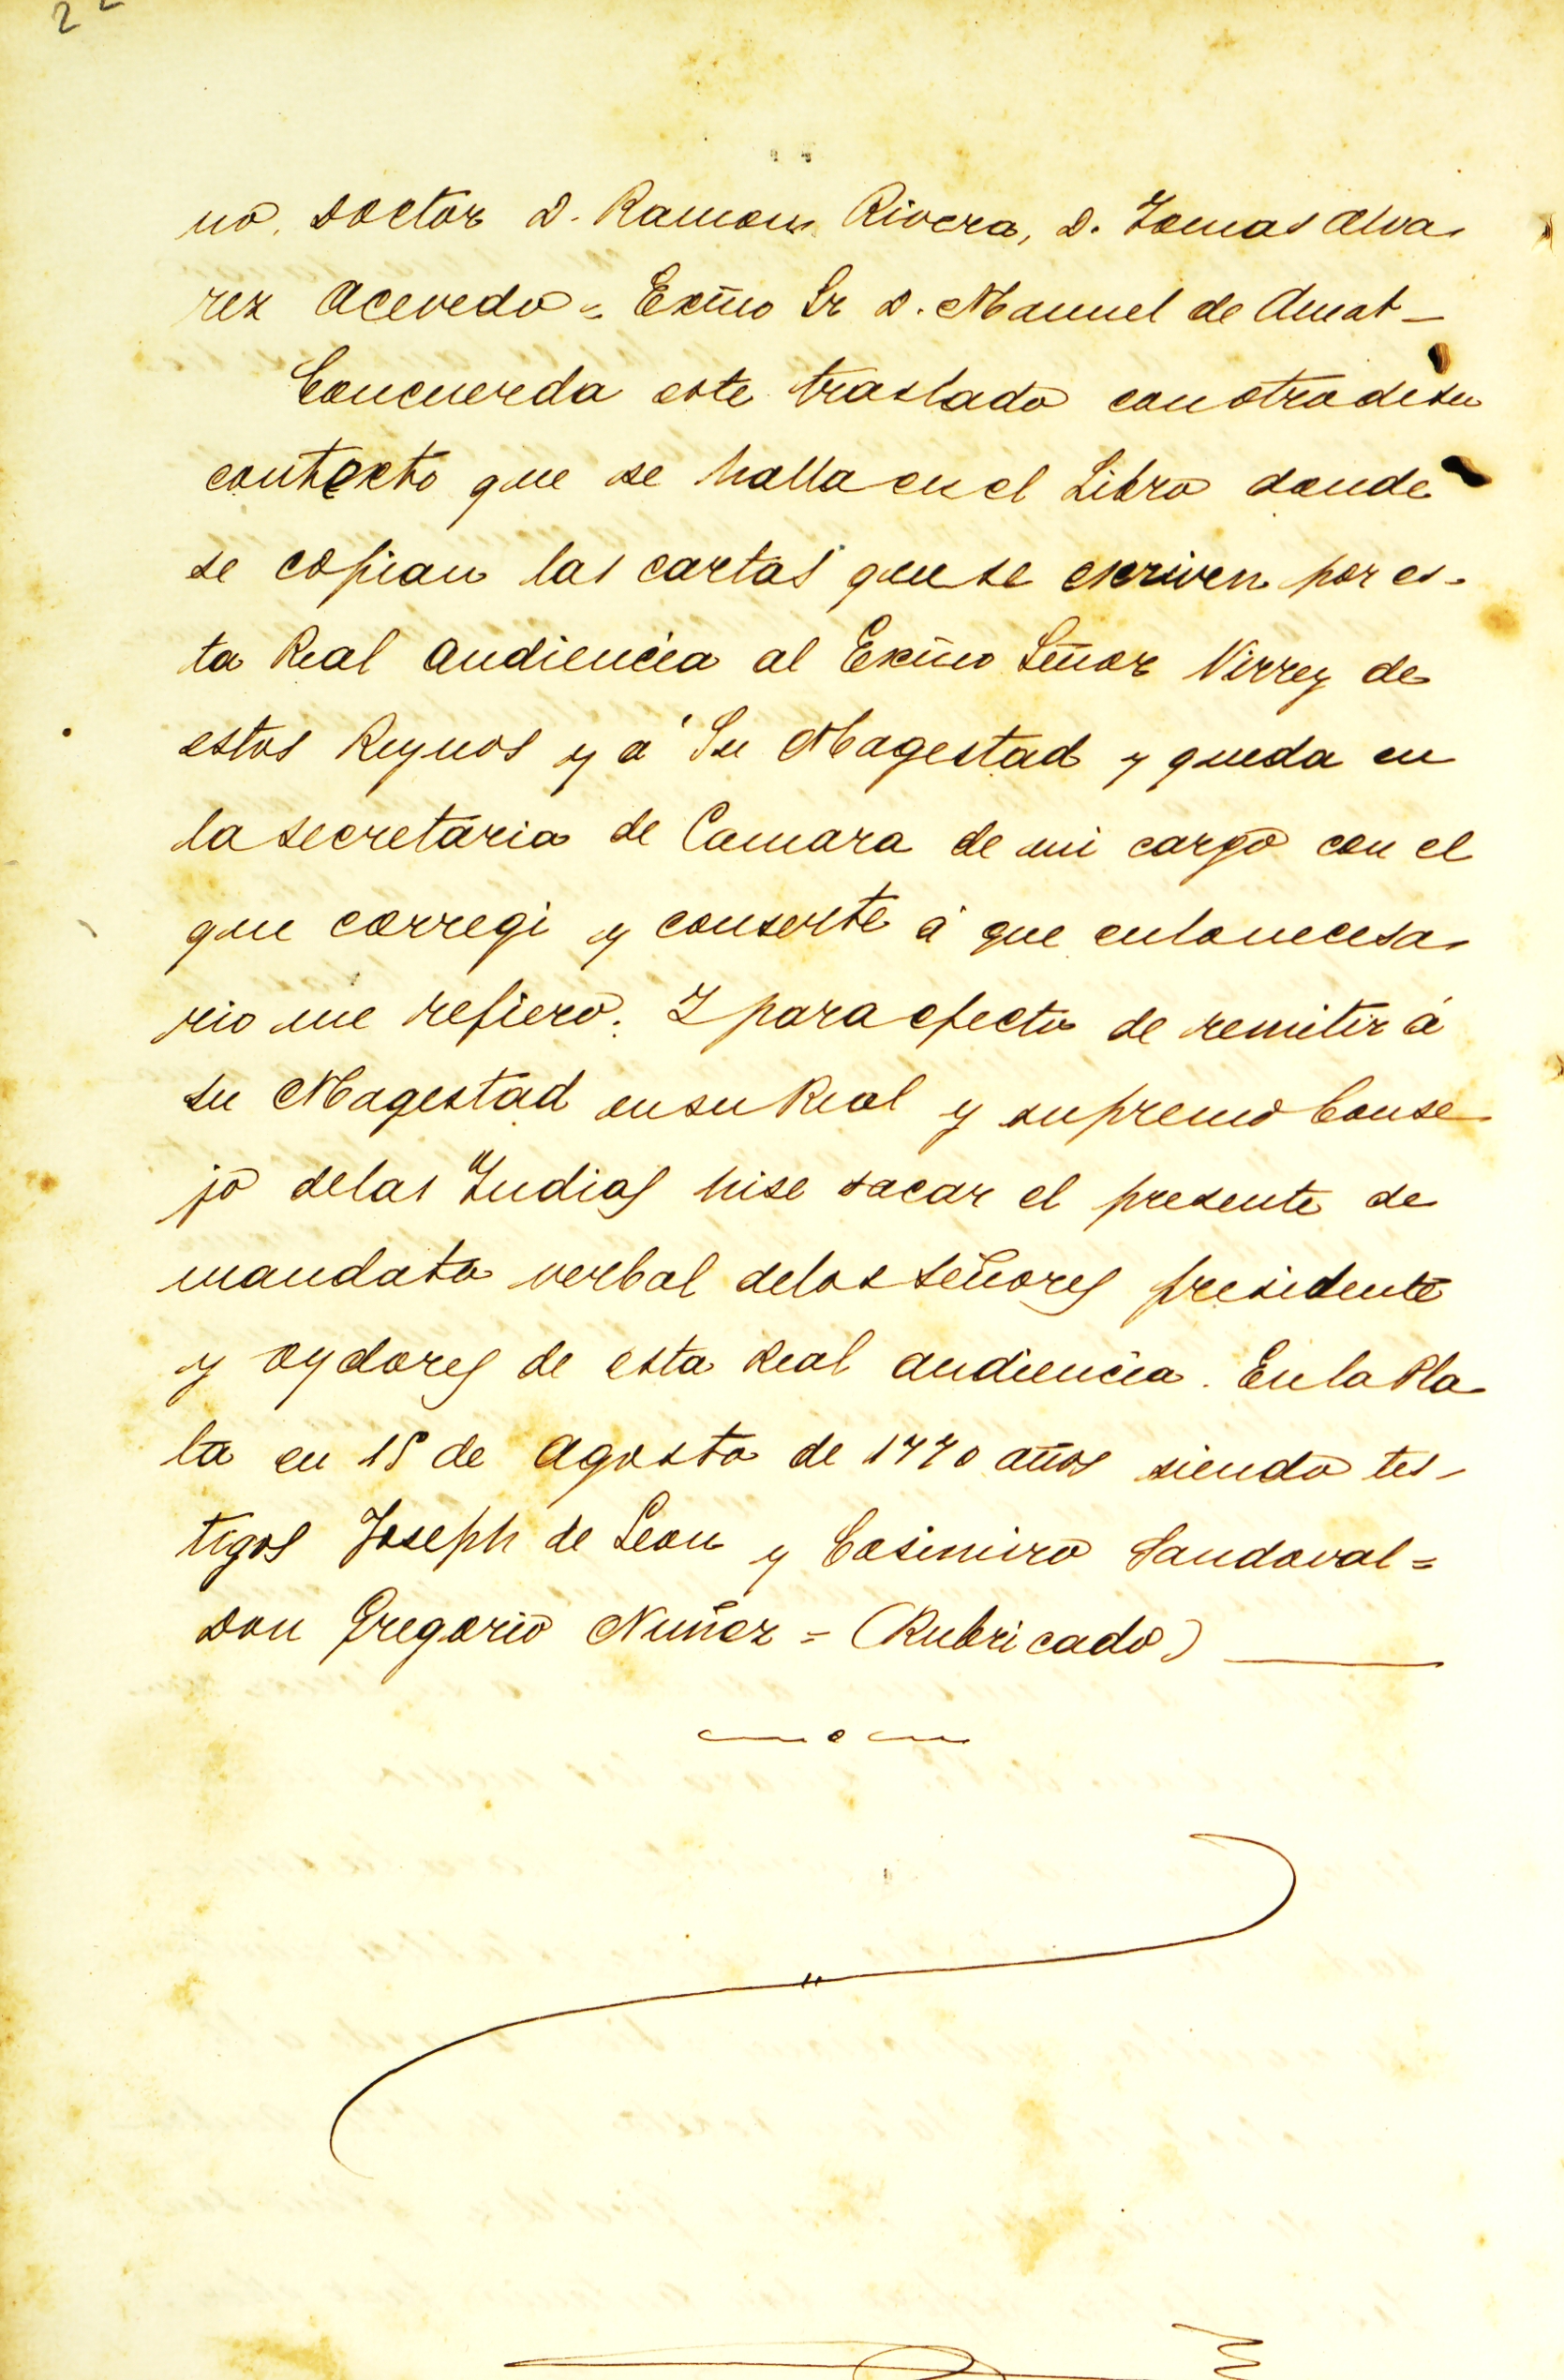 2
no. Doctor D. Ramon Rivera, D. Tomas Alva-
rez Acevedo = Exmo Sr D. Manuel de Amat –
Concuerda este traslado con otro de su
contexto que se halla en el Libro donde
se copian las cartas que se escriven por es-
ta Real Audiencia al Exmo Señor Virrey de
estos Reynos y á Su Magestad y queda en
la secretaria de Camara de mi cargo con el
que corregi y conserté á que en lo necesa-
rio me refiero. I para efecto de remitir á
su Magestad en su Real y supremo Conse-
jo de las Indias hise sacar el presente de
mandato verbal de los señores presidente
y oydores de esta Real audiencia. En la Pla-
ta en 15 de Agosto de 1770 años siendo tes-
tigos Joseph de Leon y Casimiro Sandoval =
Don Gregorio Nuñez = (Rubricado)